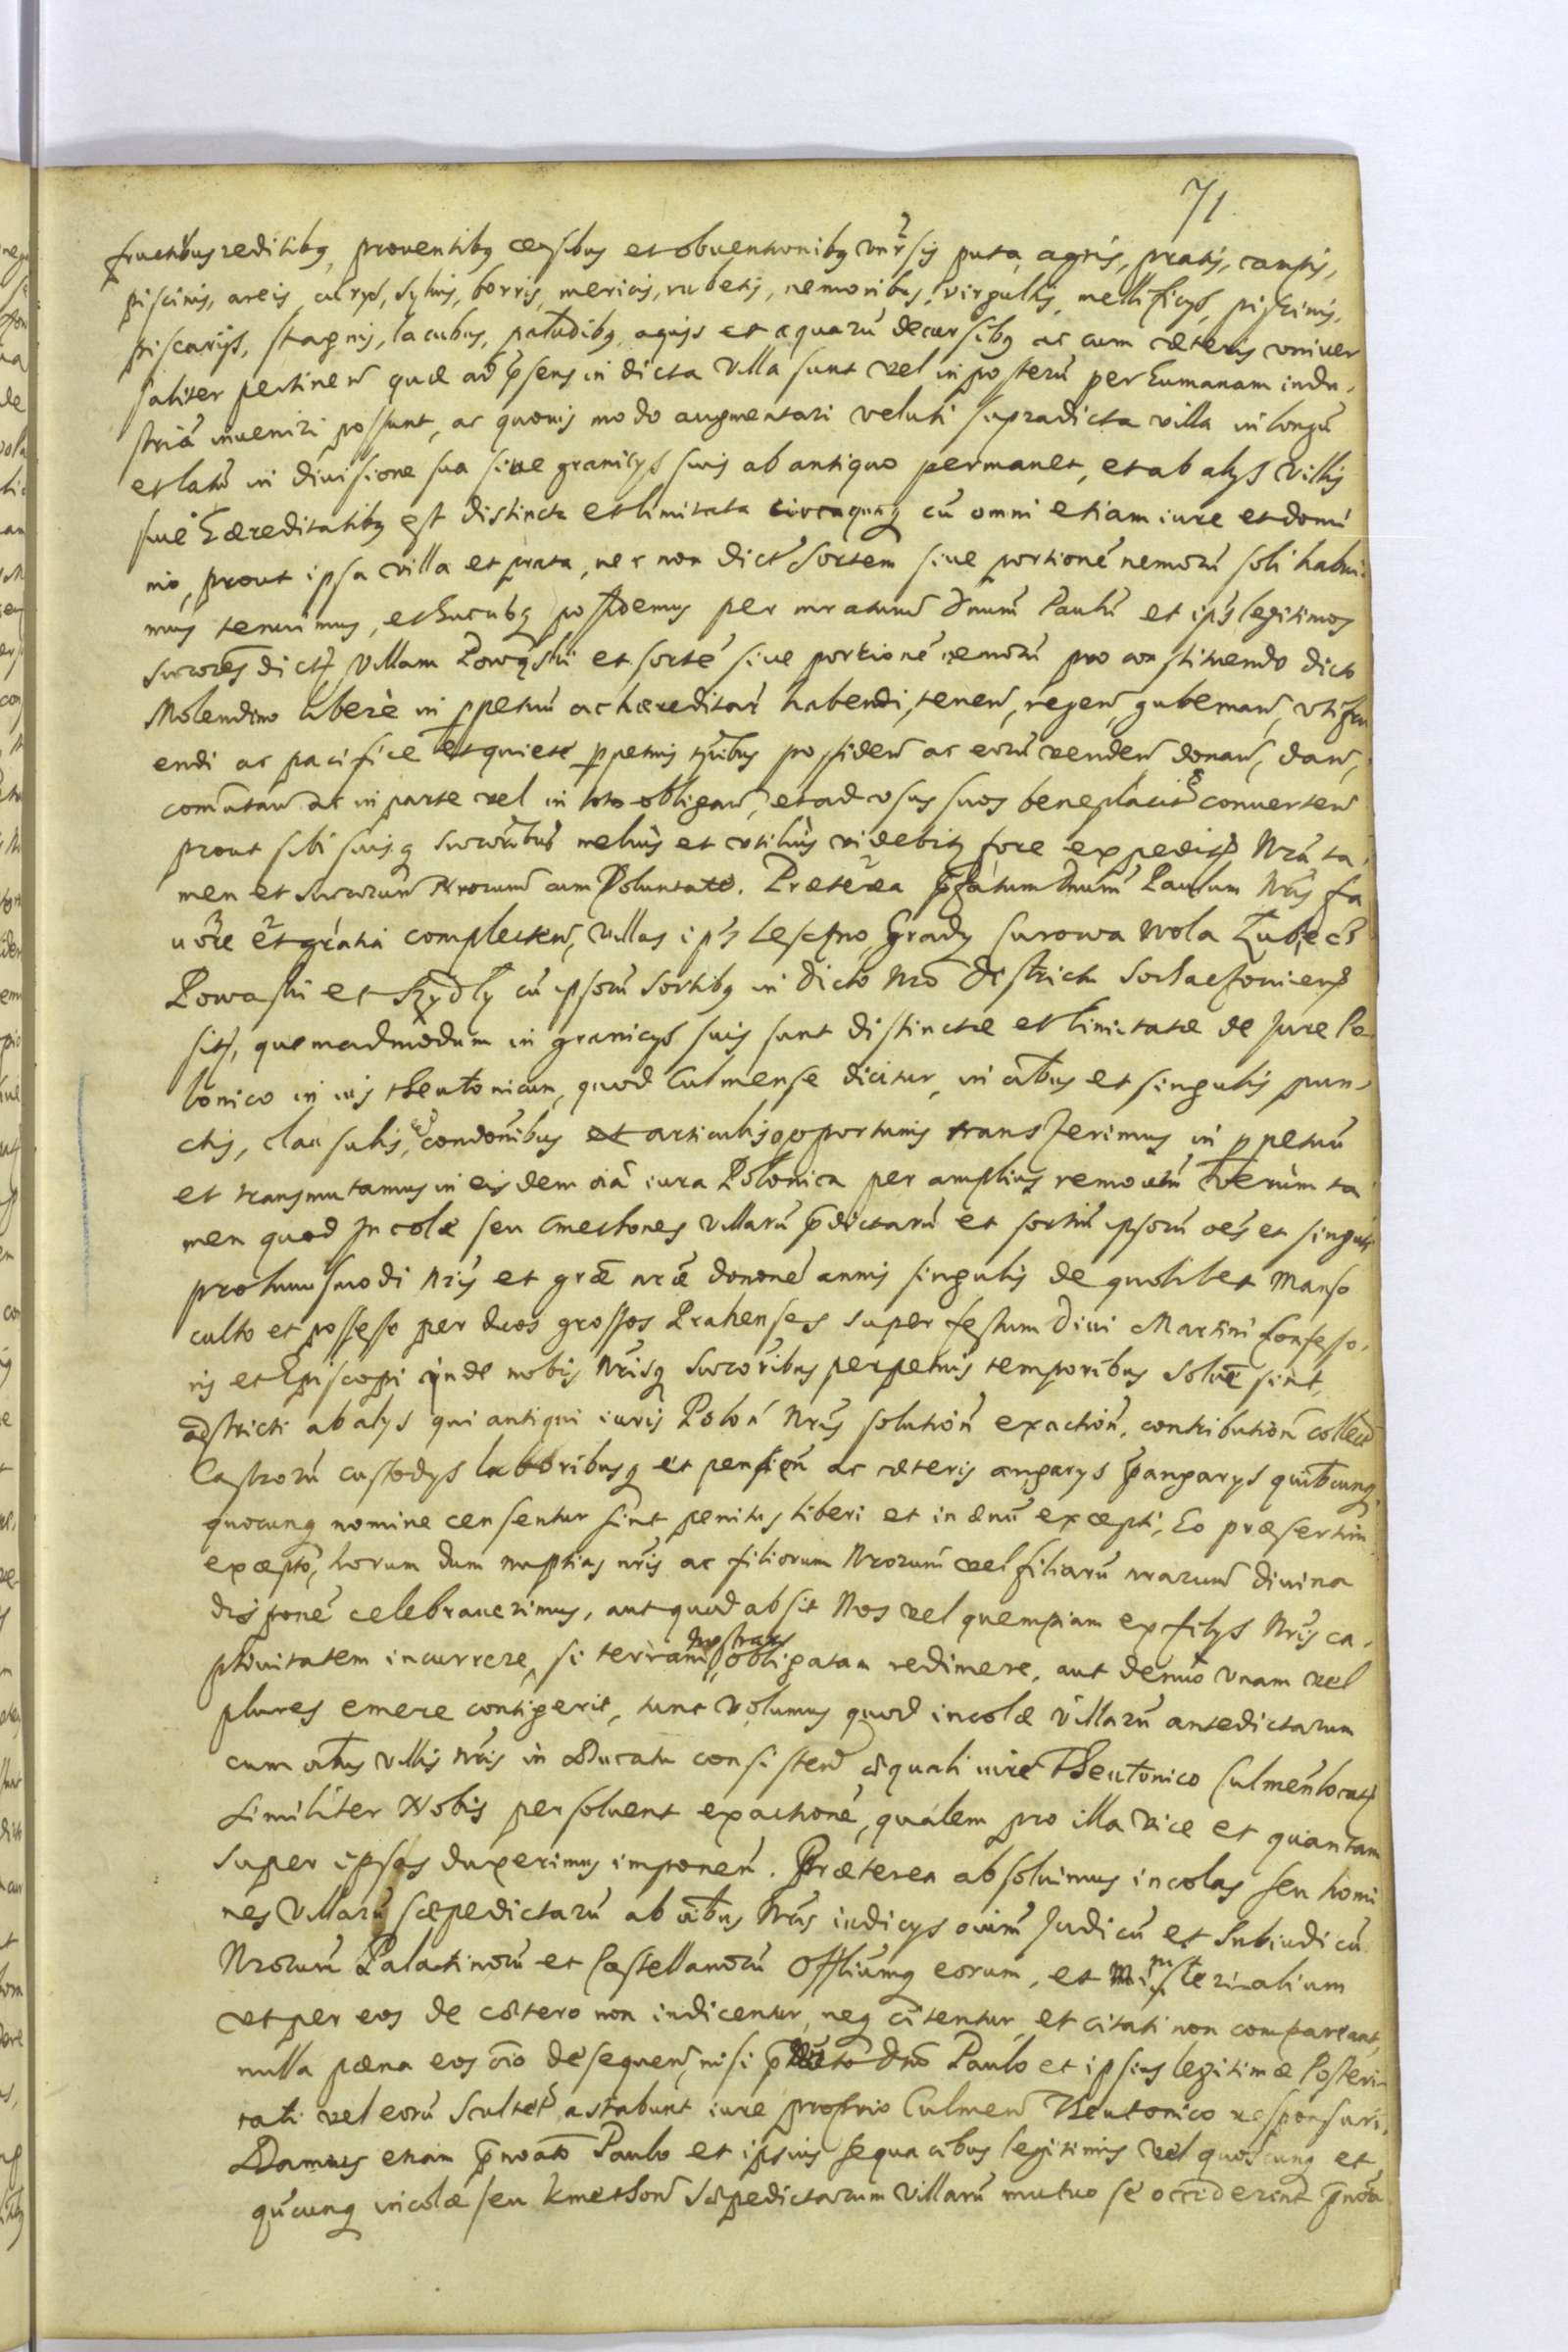 71
fructibus reditibq, prouentibq censibus et obuentionibq vnĩrsis puta, agris, pratis, campis,
piscinis, areis curys, syluis, borris, mericis, rubetis, nemoribus, virgultis, mellificys, piscinis,
piscarijs, stagnis, lacubus, paludibq, aquis et aquarũ decursibq ac cum cæteris vniuer
saliter pertinen quæ ad p̃sens in dicta villa sunt vel in posterũ per humanam indu-
striã inueniri possunt, ac quouis modo augmentari veluti supradicta villa in longũ
et latũ in diuisione sua siue granicys suis ab antiquo permanet, et ab alys villis
siue hæreditatibq est distincta et limitata circaquaq cũ omni etiam iure et domi
nio, prout ipsa villa et prata, nec non dict sortem siue portionẽ nemorũ soli habui
mus tenuimus, et hucusq possidemus per mratum Dnum Paulũ et ips legitimos
succores dict villam Powąski et sortẽ siue portionẽ nemorũ pro construendo dicto
Molendino liberè in ppetuũ ac hæreditar habendi, tenen, regen, gubernan, vtifru
endi ac pacificè et quietè ppetuis tpribus possiden ac eorũ venden donan, dan,
comutan ac in parte vel in toto obligan, et ad vsus suos beneplacit conuerten
prout sibi suisq succoribus melius et vtilius videbitq fore expedit Nrã ta-
men et succorum Nrorum cum Voluntate. Præterea p̃fatum Dnum Paulum Nris fa
uore et gratia complecten, villas ips Leszno, Grady Surowa Wola Łubiec
Powaski et Szydły cũ ipsorũ sortibq in dicto Nro districtu Sochaczouien
sit, quemadmodum in granicys suis sunt distinctæ et limitatæ de Jure Po
lonico in ius theutonicum, quod Culmense dicitur, in oibus et singulis pun-
ctis, clausulis, condonibus et articulis opportunis transferimus in ppetuũ
et transmutamus in eisdem oia iura Polonica per amplius remouẽn verùm ta
men quod Incolæ seu Cmethones villarũ p̃dictarũ et sortiũ ipsorũ oes et singuli
pro huiusmodi Nris et græ nræ dononẽ annis singulis de quolibet Manso
culto et possesso per duos grossos Prahenses super festum Diui Martini Confesso-
ris et Episcopi inde nobis Nrisq succoribus perpetuis temporibus soluẽ sint
adstricti ab alys qui antiqui iuris Polon Nris solution exaction, contribution collect
Castrorũ custodys laboribusq et pension ac cæteris angarys p̃angarys quibuscunq
quocunq nomine censentur sint penitus liberi et in ænũ excepti, Eo præsertim
excepto, horum dum nuptias nris ac filiorum Nrorum vel filiarũ nrarum diuina
disponẽ celebrauerimus, aut quod absit Nos vel quempiam ex filys Nris ca-
ptiuitatem incurrere, si terram nostram obligatam redimere, aut denuo vnam vel
plures emere contigerit, tunc volumus quod incolæ villarũ antedictarum
cum oibus villis Nris in Ducatu consisten æquali iure Theutonico Culmen locat
similiter Nobis persoluent exactionẽ, qualem pro illa vice et quantam
super ipsos duxerimus imponen. Præterea absoluimus incolas seu homi
nes villarũ sæpedictarũ ab oibus Nris iudicys oium Judicũ et Subiudicũ
Nrorum Palatinorũ et Castellanorũ Offliumq eorum, et Ministerialium
vt per eos de cætero non iudicentur, neq citentur, et citati non compareant,
nulla pæna eos oio desequen, nisi p̃ dicto dno Paulo et ipsius legitimæ Posteri-
tati vel eorũ scultet astabunt iure proprio Culmen Theutonico responsuri,
Damus etiam p̃noato Paulo et ipsius sequacibus legitimis vel quoscunq et
qũcunq incolæ seu kmethon sæpedictarum villarũ mutuo se occiderint p̃noa